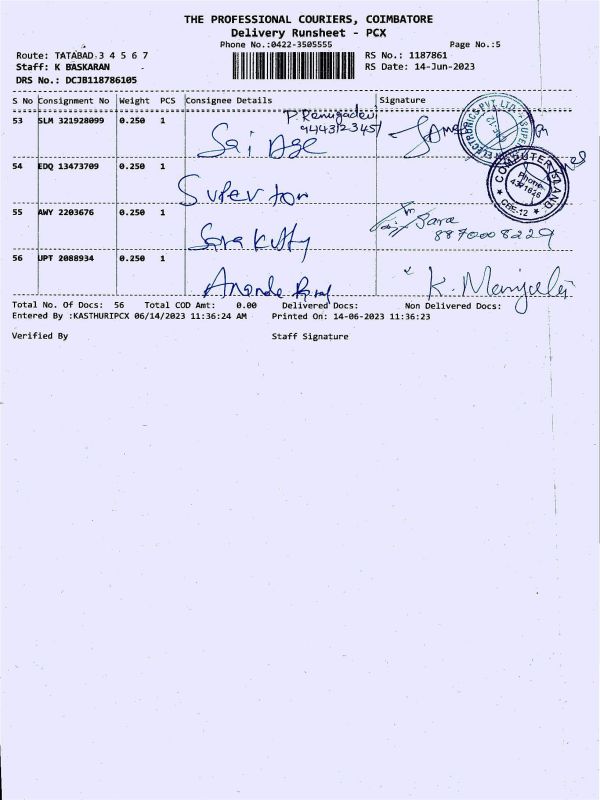 THE PROFESSIONAL COURIERS, COIMBATORE
Delivery Runsheet - PCX
Phone No.:0422-3505555
Page No.:5
Route: TATABAD 3 4 5 6 7
RS No.: 1187861
Staff: K BASKARAN
RS Date: 14-Jun-2023
DRS No.: DCJB118786105
S No Consignment No Weight PCS Consignee Details Signature
53 SLM 321928099 0.250 1
P. Renugadevi
9443123451
Sai Age
ELECTRONICS PVT. LTD.
54 EDQ 13473709 0.250 1
Supertor
COMPUTER ISLAND
Phone
4391626
CBE-12
55 AWY 2203676 0.250 1
Sara
8870008229
Sarakutty
56 UPT 2088934 0.250 1
Ananda Raj
K. Manjula
Total No. Of Docs: 56 Total COD Amt: 0.00 Delivered Docs: Non Delivered Docs:
Entered By :KASTHURIPCX 06/14/2023 11:36:24 AM Printed On: 14-06-2023 11:36:23
Verified By Staff Signature